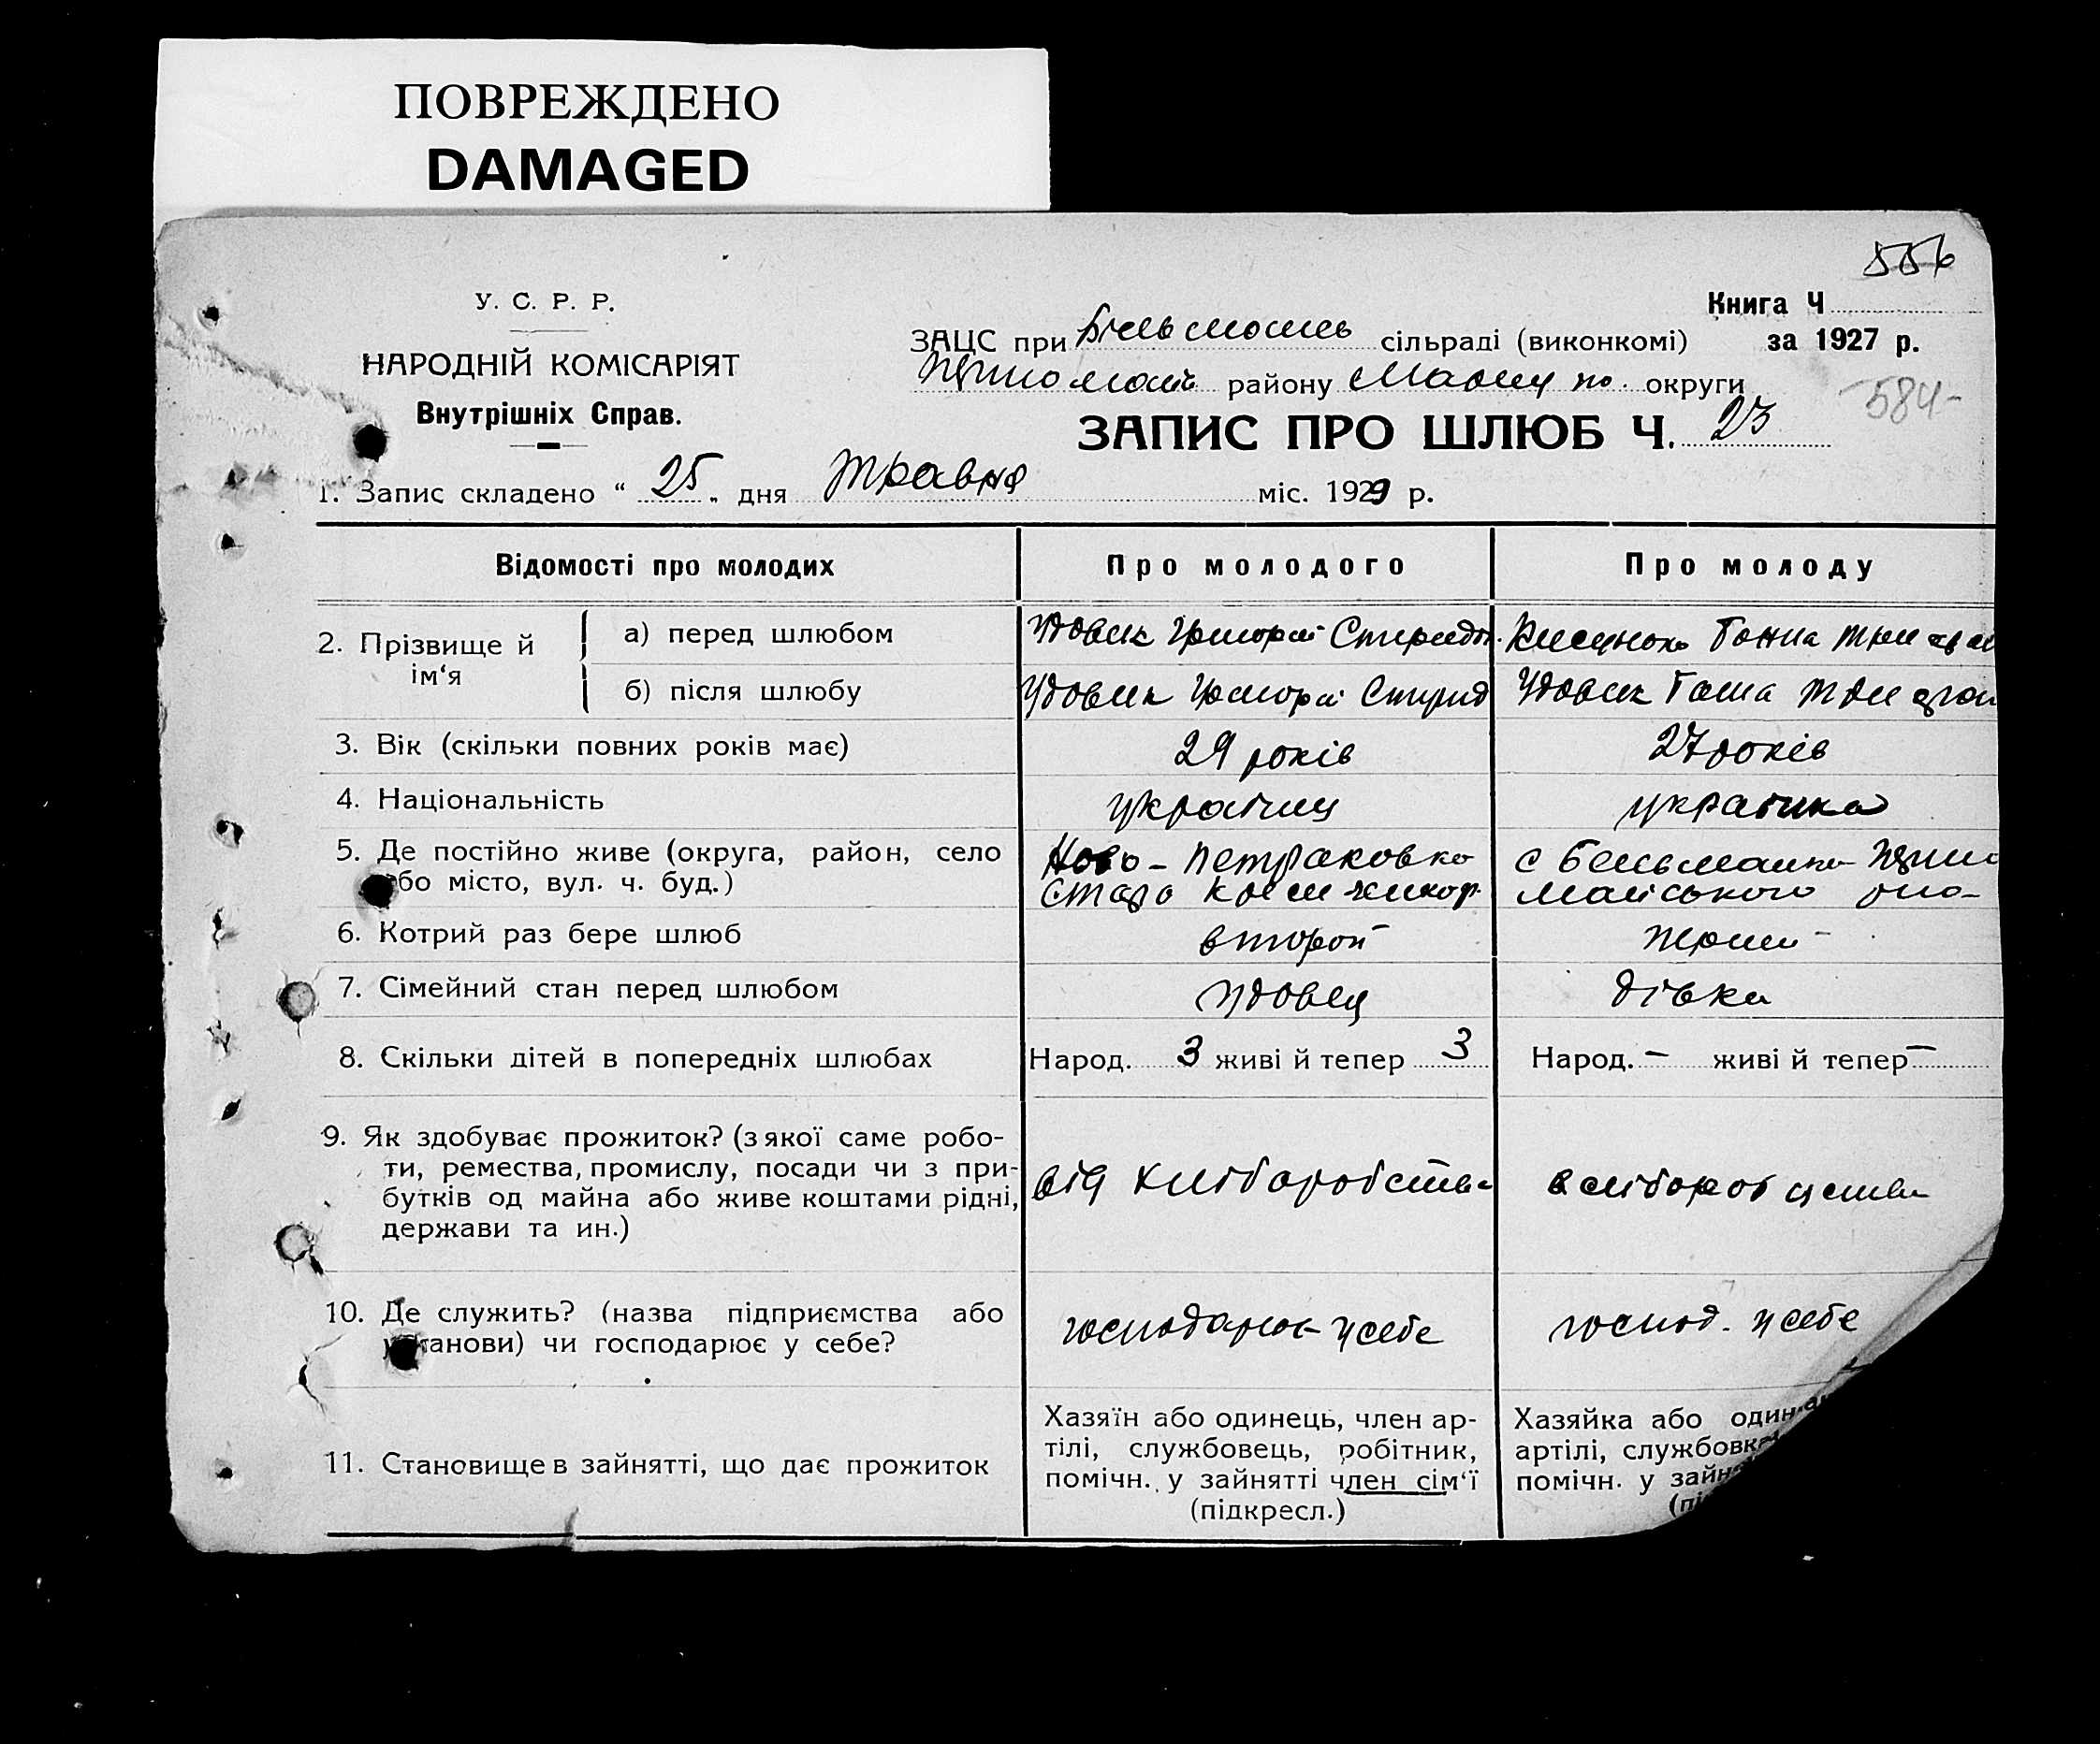 ПОВРЕЖДЕНО
DAMAGED
556
У. С. Р. Р.
НАРОДНІЙ КОМІСАРІЯТ
Внутрішніх Справ.
Книга Ч
за 1927 р.
ЗАЦС при сільраді (виконкомі)
району округи
584
ЗАПИС ПРО ШЛЮБ Ч. 23
1. Запис складено “ 25 „ дня Травня міс. 1929 р.
Відомості про молодих
Про молодого
Про молоду
2. Прізвище й ім‘я
а) перед шлюбом
Удовик Григорій Спиридон.
Ганна
б) після шлюбу
Удовик Григорій Спирид
Удовик Ганна
3. Вік (скільки повних років має)
29 років
27 років
4. Національність
українец
українка
5. Де постійно живе (округа, район, село
або місто, вул. ч. буд.)
Ново-Петраковка
Старо
с
майського
6. Котрий раз бере шлюб
второй
7. Сімейний стан перед шлюбом
удовец
дівка
8. Скільки дітей в попередніх шлюбах
Народ. 3 живі й тепер 3
Народ. – живі й тепер –
9. Як здобуває прожиток? (з якої саме робо-
ти, ремества, промислу, посади чи з при-
бутків од майна або живе коштами рідні,
держави та ин.)
від хліборобства
10. Де служить? (назва підприємства або
установи) чи господарює у себе?
господарює у себе
господ. у себе
11. Становище в зайнятті, що дає прожиток
Хазяїн або одинець, член ар-
тілі, службовець, робітник,
помічн. у зайнятті член сім‘ї
(підкресл.)
Хазяйка або один
артілі, службовка
помічн. у зайн
(пі